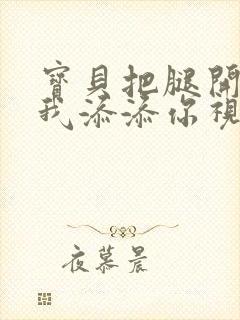 寶貝把腿開
我添添你視
夜慕晨